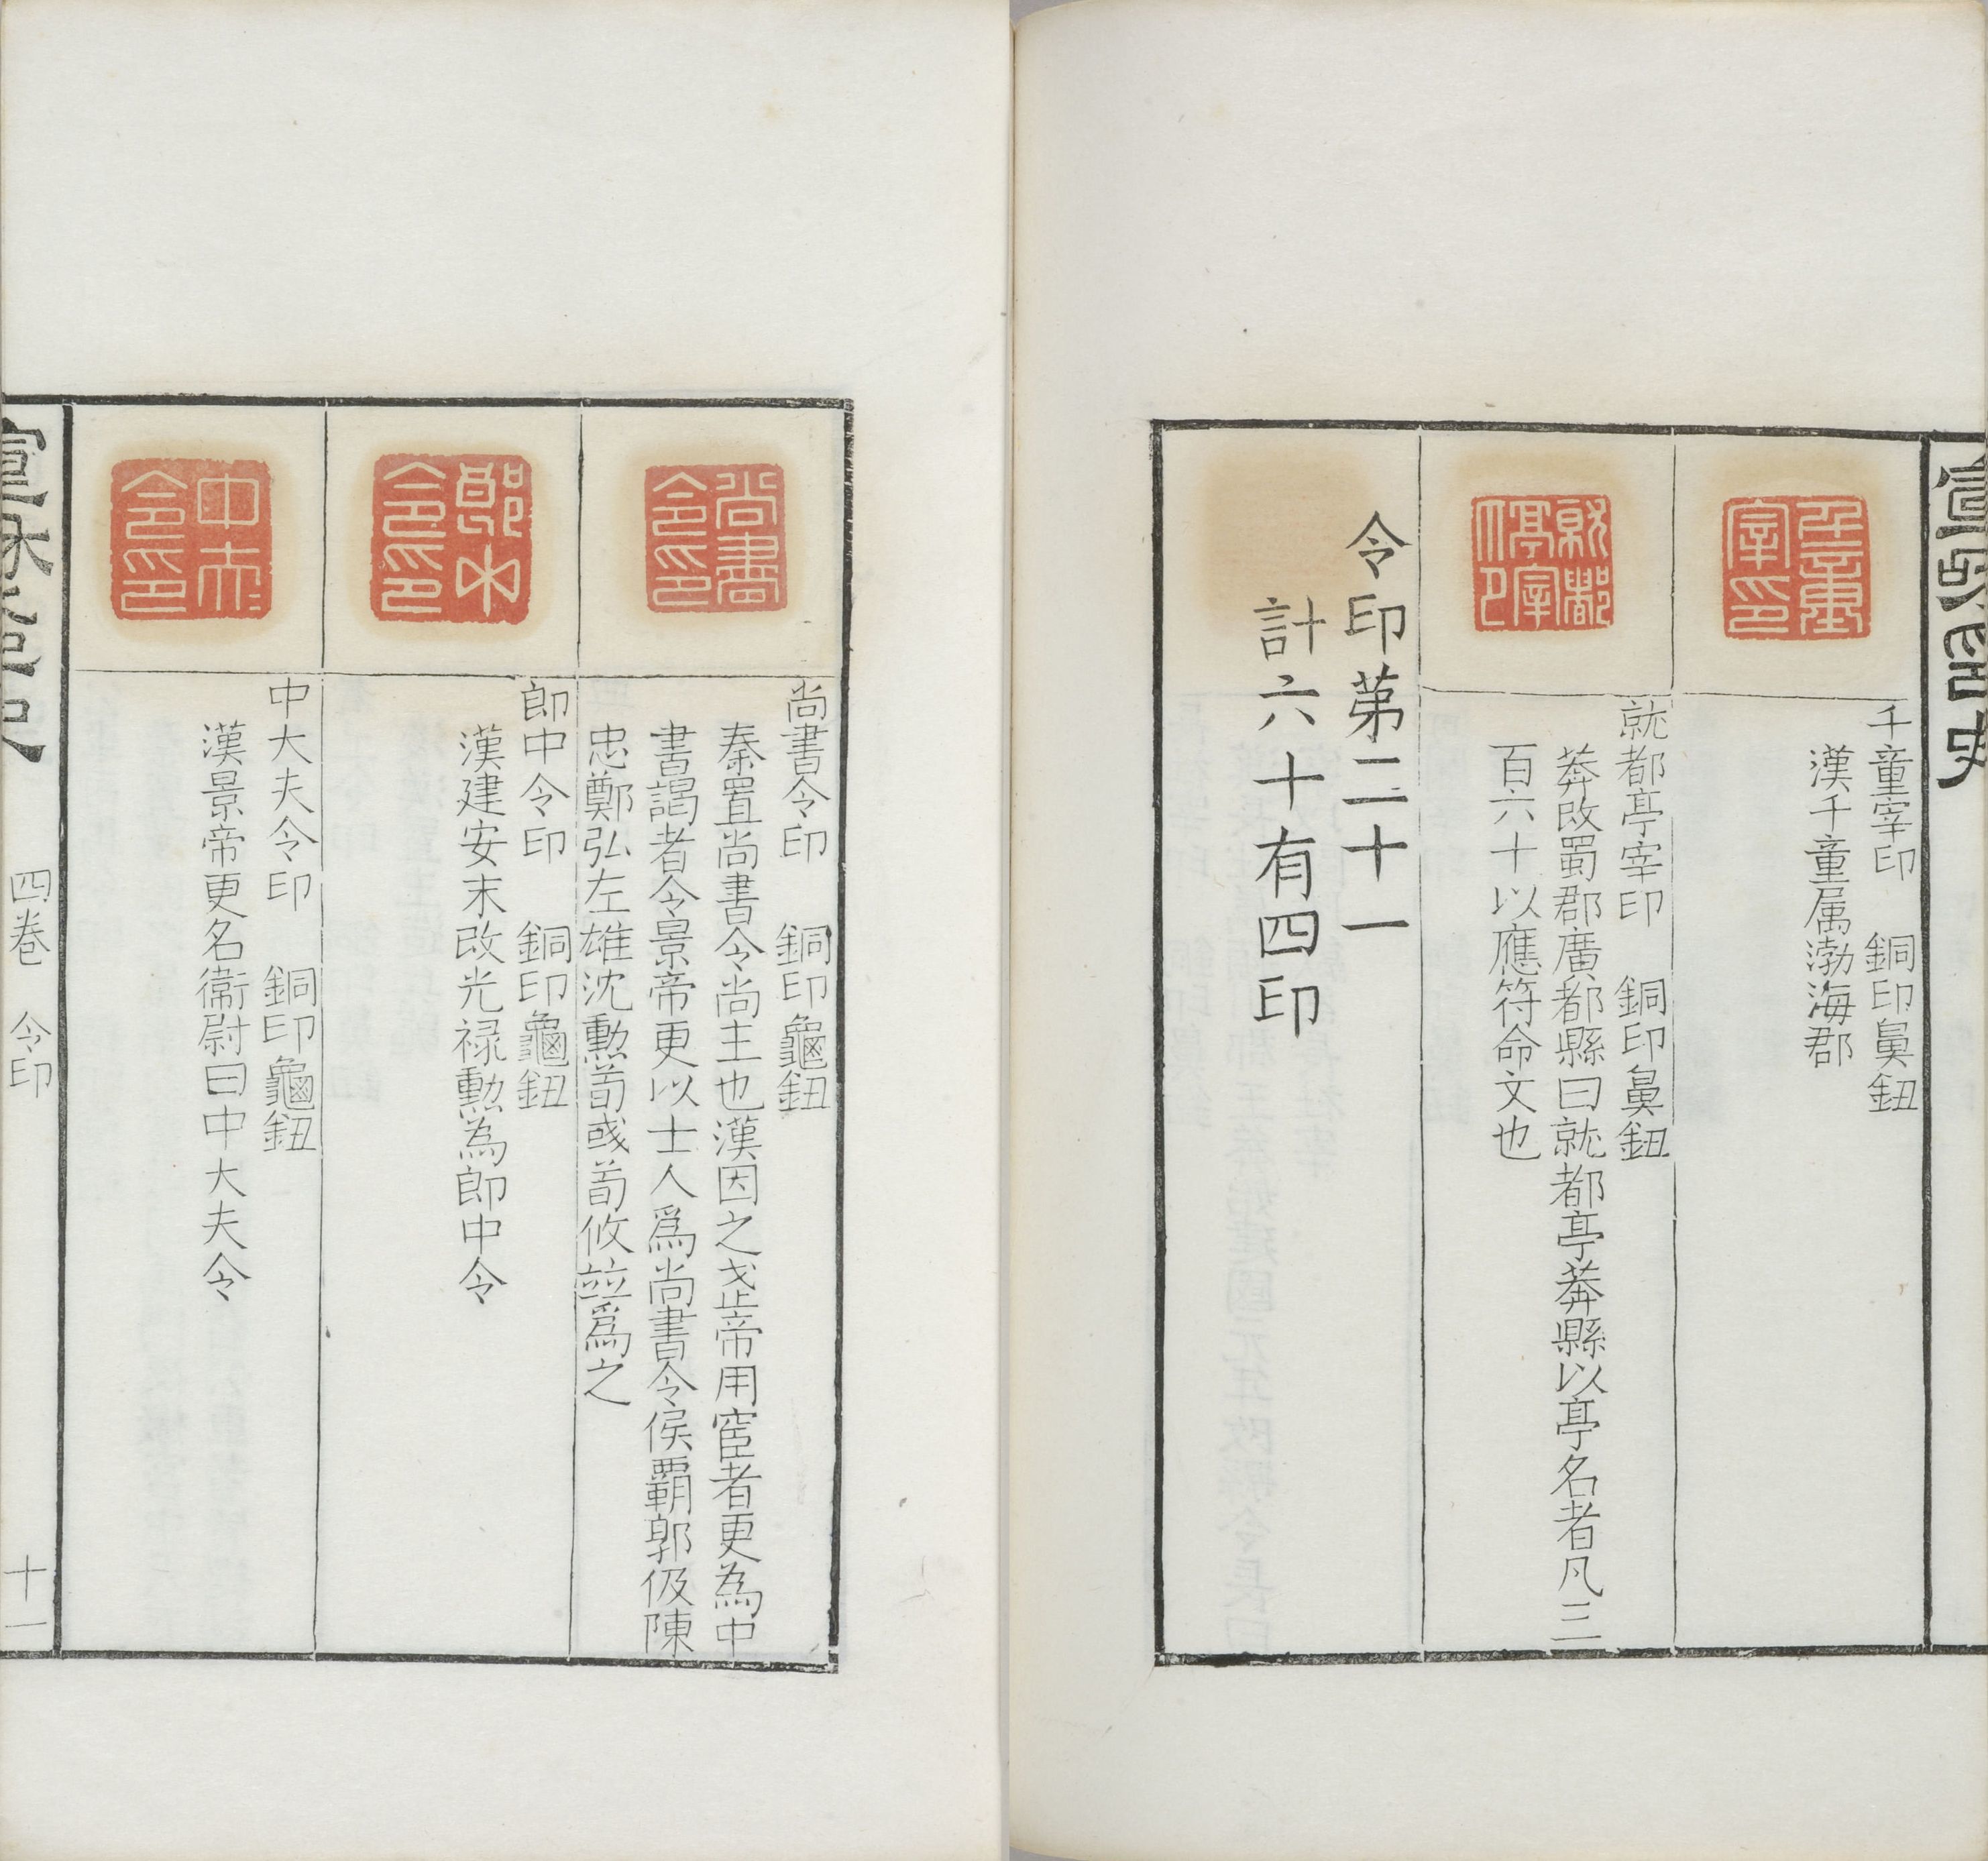 千童宰印　銅印鼻鈕
漢千童属渤海郡
就都亭宰印　銅印鼻鈕
莽改蜀郡廣都縣曰就都亭莽縣以亭名者凡三
百六十以應符命文也
令印第二十一
計六十有四印
尚書令印　銅印龜鈕
秦置尚書令尚主也漢因之武帝用宦者更為中
書謁者令景帝更以士人爲尚書令侯霸郭伋陳
忠鄭弘左雄沈勲荀彧荀攸竝爲之
郎中令印　銅印龜鈕
漢建安末改光禄勲為郎中令
中大夫令印　銅印龜鈕
漢景帝更名衛尉曰中大夫令
四卷　令印
十一